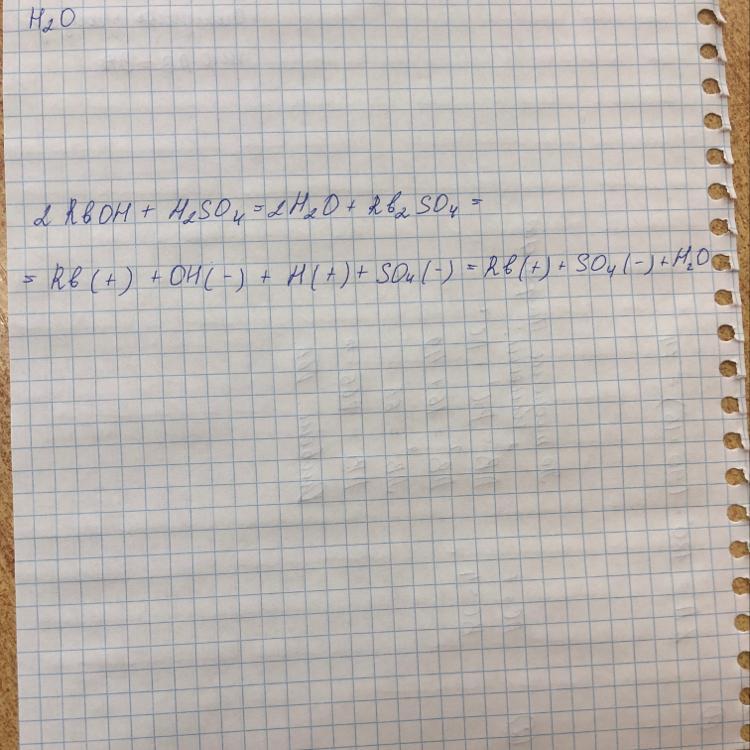 H₂O
2 RbOH + H₂SO₄ = 2H₂O + Rb₂SO₄ =
= Rb (+) + OH (-) + H (+) + SO₄ (-) = Rb (+) + SO₄ (-) + H₂O